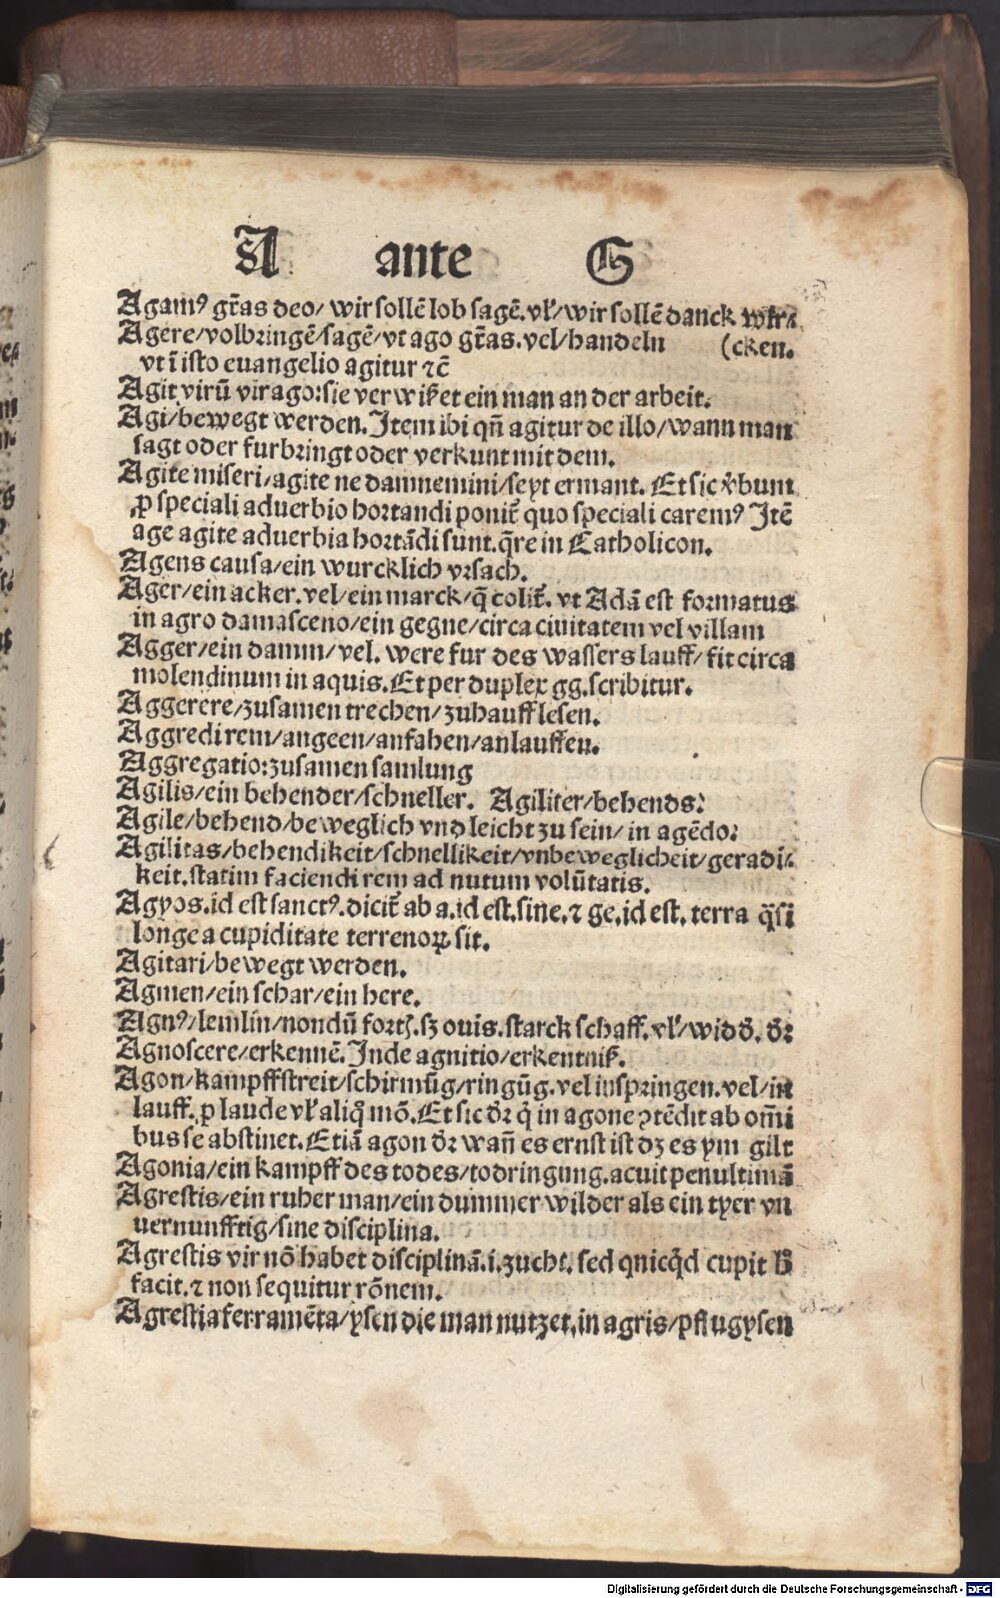 A ante G
Agamꝰ gr̃as deo/ wir sollẽ lob sagẽ. vl̕/ wir sollẽ danck wir⸗
Agere/volbringẽ/sagẽ/vt ago gr̃as. vel/handeln (cken.
vt ĩ isto euangelio agitur ⁊c̃
Agit virũ virago: sie verwißet ein man an der arbeit.
Agi/bewegt werden. Item ibi qñ agitur de illo/wann man
sagt oder furbringt oder verkunt mit dem.
Agite miseri/agite ne damnemini/seyt ermant. Et sic v̾bum
ꝓ speciali aduerbio hortandi ponit̃ quo speciali caremꝰ Itẽ
age agite aduerbia hortãdi sunt. q̃re in Catholicon.
Agens causa/ein wurcklich vrsach.
Ager/ein acker. vel/ein marck/q̃ colit̃. vt Adã est formatus
in agro damasceno/ein gegne/circa ciuitatem vel villam
Agger/ein damm/vel. were fur des wassers lauff/fit circa
molendinum in aquis. Et per duplex gg. scribitur.
Aggerere/zusamen trechen/zuhauff lesen.
Aggredi rem/angeen/anfahen/anlauffen.
Aggregatio: zusamen samlung
Agilis/ein behender/schneller. Agiliter/behends:
Agile/behend/beweglich vnd leicht zu sein/in agẽdo:
Agilitas/behendikeit/schnellikeit/vnbeweglicheit/geradi⸗
keit. statim faciendi rem ad nutum volũtatis.
Agyos. id est sanctꝰ. dicit̃ ab a. id est. sine. ⁊ ge. id est. terra q̃si
longe a cupiditate terrenoꝝ sit.
Agitari/bewegt werden.
Agmen/ein schar/ein here.
Agnꝰ/lemlin/nondũ fort. sꝫ ouis. starck schaff. vl̕/widd̾. d̾:
Agnoscere/erkennẽ. Inde agnitio/erkentniß.
Agon/kampffstreit/schirmũg/ringũg. vel inspringen. vel/in
lauff. ꝑ laude vl̕ aliq̃ mõ. Et sic dr̃ q̃ in agone ꝯtẽdit ab om̃i
bus se abstinet. Etiã agon dr̃ wañ es ernst ist dꝫ es ym gilt
Agonia/ein kampff des todes/todringung. acuit penultimã
Agrestis/ein ruher man/ein dummer wilder als ein tyer vn
uernunfftig/sine disciplina.
Agrestis vir nõ habet disciplinã. i. zucht. sed quicq̃d cupit h̾
facit. ⁊ non sequitur rõnem.
Agrestia ferramẽta/ysen die man nutzet, in agris/pflugysen
Digitalisierung gefördert durch die Deutsche Forschungsgemeinschaft - DFG